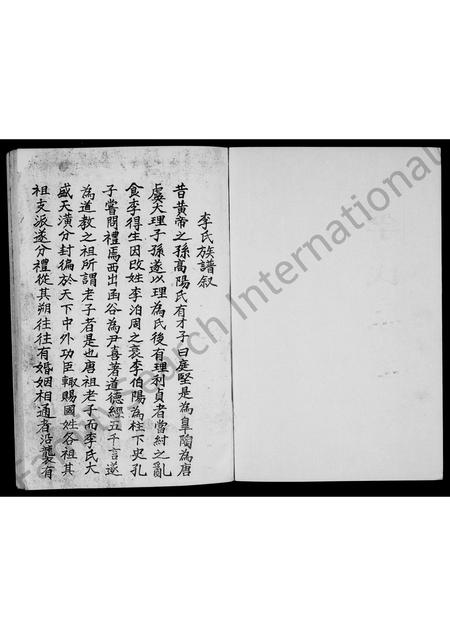 李氏族譜叙
昔黃帝之孫高陽氏有才子曰庭堅是為皐陶為唐
虞大理子孫遂以理為氏後有理利貞者當紂之亂
食李得生因改姓李泊周之衰李伯陽為柱下史孔
子嘗問禮焉西出函谷為尹喜著道德經五千言遂
為道教之祖所謂老子者是也唐祖老子而李氏大
盛天潢分封徧於天下中外功臣輙賜國姓各祖其
祖支派遂分禮從其朔往往有婚姻相通者沿襲有
FamilySearch International